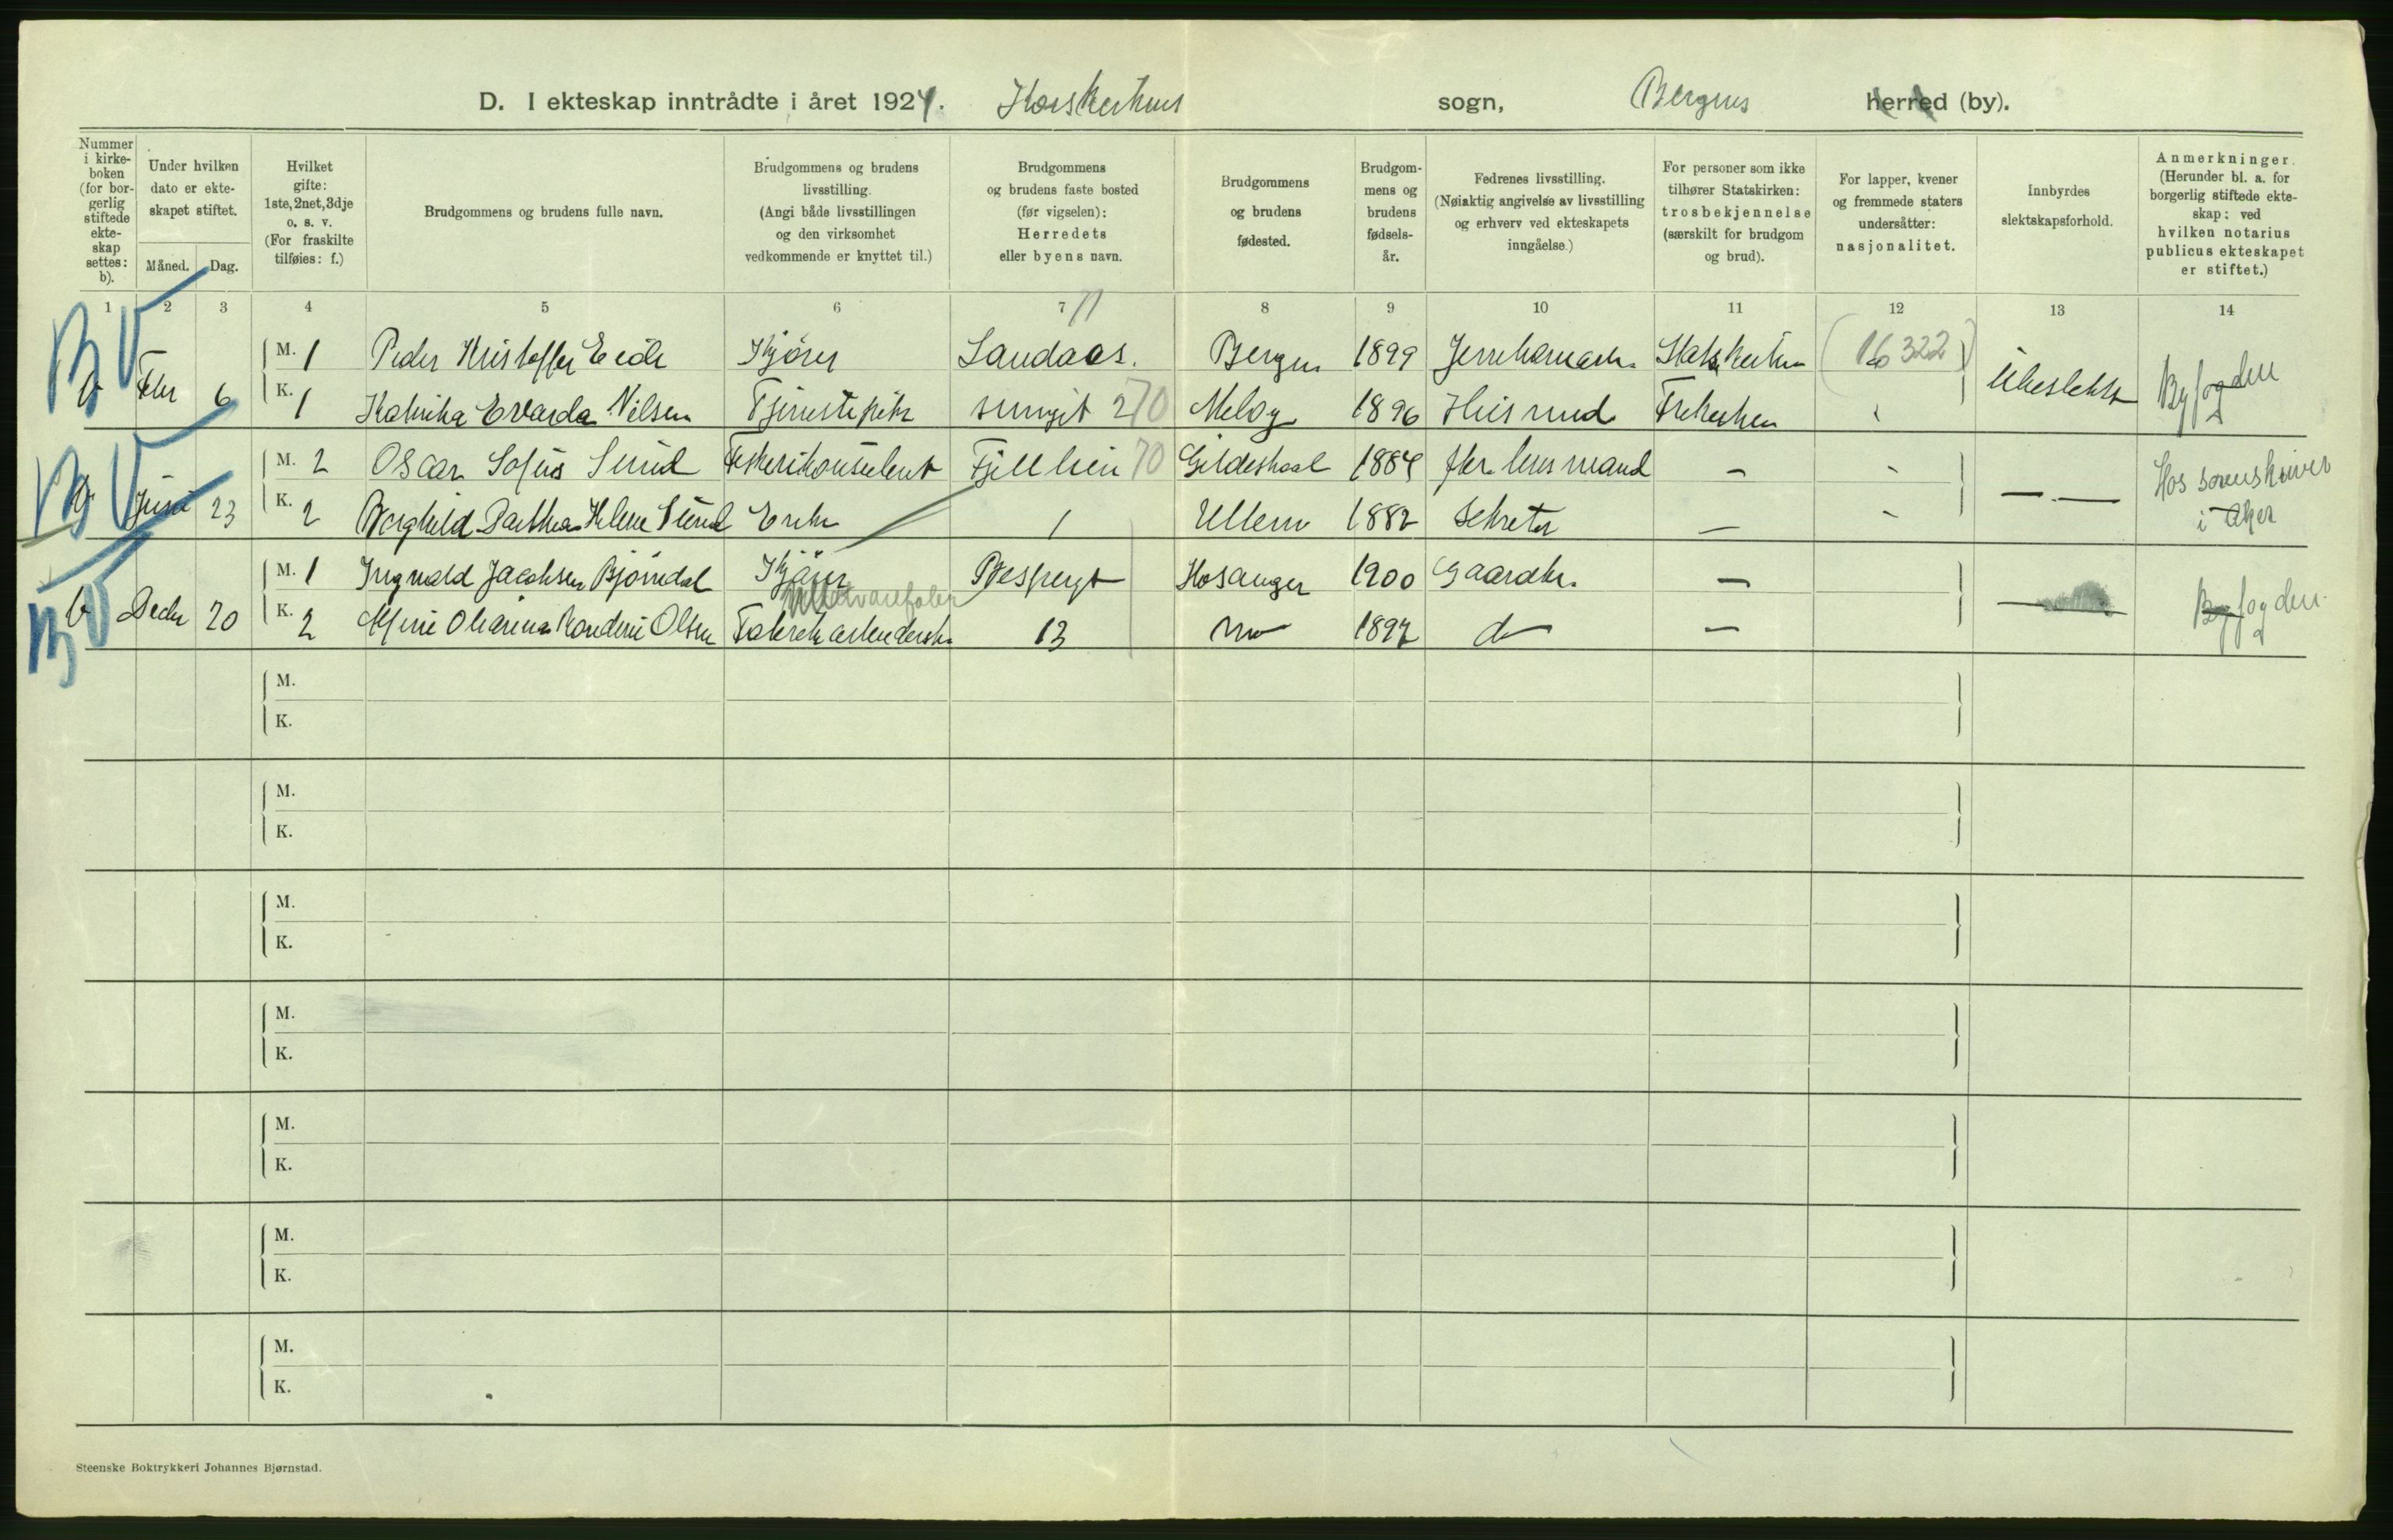 D. I ekteskap inntrådte i året 1924. Korskirkens sogn, Bergens herred (by).
Nummer i kirke-boken (for bor-gerlig stiftede ekte-skap settes: b).
Under hvilken dato er ekte-skapet stiftet.
Måned. Dag.
Hvilket gifte: 1ste, 2net, 3dje o. s. v. (For fraskilte tilføies: f.)
Brudgommens og brudens fulle navn.
Brudgommens og brudens livsstilling. (Angi både livsstillingen og den virksomhet vedkommende er knyttet til.)
Brudgommens og brudens faste bosted (før vigselen): Herredets eller byens navn.
Brudgommens og brudens fødested.
Brudgom-mens og brudens fødsels-år.
Fedrenes livsstilling. (Nøiaktig angivelse av livsstilling og erhverv ved ekteskapets inngåelse.)
For personer som ikke tilhører Statskirken: trosbekjennelse (særskilt for brudgom og brud).
For lapper, kvener og fremmede staters undersåtter: nasjonalitet.
Innbyrdes slektskapsforhold.
Anmerkninger. (Herunder bl. a. for borgerlig stiftede ekte-skap: ved hvilken notarius publicus ekteskapet er stiftet.)
1 2 3 4 5 6 7 8 9 10 11 12 13 14
BV
b Febr 6 M. 1 Peder Kristoffer Eide Kjører Landaas. Bergen 1899 Statskirken (16322) Ubeslektet Byfogden
K. 1 Katrika Evarda Nilsen Tjenestepike 270 Meløy 1896 Husmand Frikirken
BV
b Juni 23 M. 2 Oscar Sofus Sund Fiskerikonsulent Fjellien 70 Gildeskaal 1884 fhv. lensmand - - — Hos sorenskriver i Aker
K. 2 Borghild Dorthea Helene Sund Enke 1 Ullern 1882 Sekretær - -
BV
b Decbr 20 M. 1 Ingvald Jacobsen Bjørndal Kjører Hosanger 1900 Gaardbr. - — Byfogden
K. 2 Oliana Olsen Fabrikarbeiderske 13 1897 do -
M.
K.
M.
K.
M.
K.
M.
K.
M.
K.
M.
K.
M.
K.
Steenske Boktrykkeri Johannes Bjørnstad.